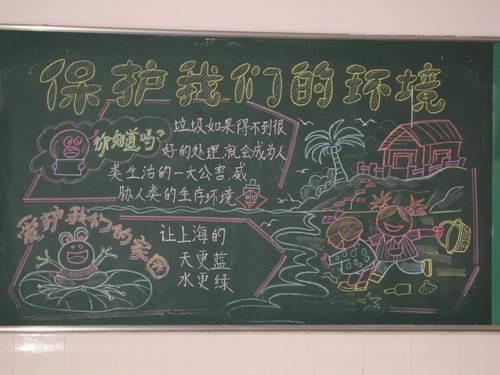 保护我们的环境
你知道吗?
垃圾如果得不到很
好的处理,就会成为人
类生活的一大公害,威
胁人类的生存环境
爱护我们的家园
让上海的
天更蓝
水更绿